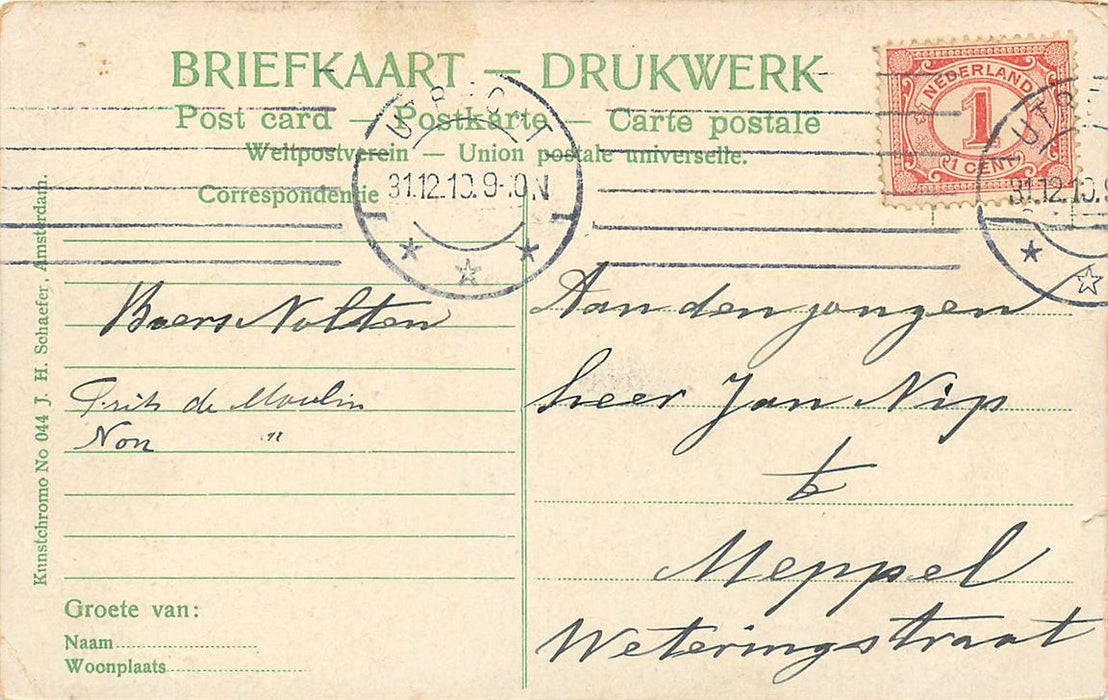 BRIEFKAART — DRUKWERK
Post card — Postkarte — Carte postale
Weltpostverein — Union postale universelle.
Correspondentie
NEDERLAND
1
1 CENT
UTRECHT
31.12.10.9-10N
UTR
31.12.10.9
Boers Nolten
Frits de Moulin
Non "
Aan den jongen
heer Jan Nip
te
Meppel
Weteringstraat
Groete van:
Naam
Woonplaats
Kunstchromo No 044 J. H. Schaefer, Amsterdam.